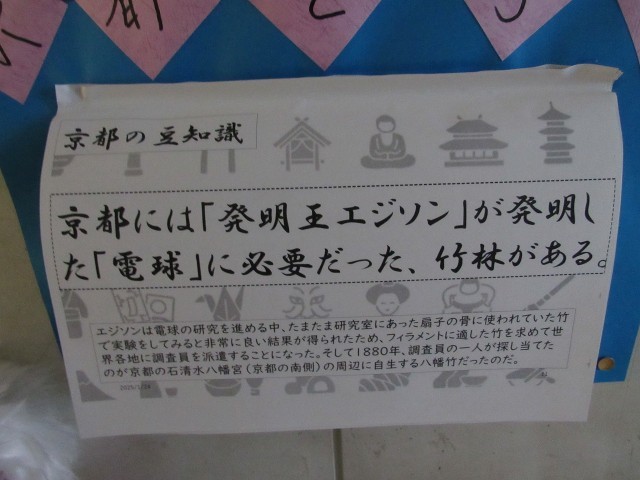 京都の豆知識
京都には「発明王エジソン」が発明し
た「電球」に必要だった、竹林がある。
エジソンは電球の研究を進める中、たまたま研究室にあった扇子の骨に使われていた竹
で実験をしてみると非常に良い結果が得られたため、フィラメントに適した竹を求めて世
界各地に調査員を派遣することになった。そして1880年、調査員の一人が探し当てた
のが京都の石清水八幡宮(京都の南側)の周辺に自生する八幡竹だったのだ。